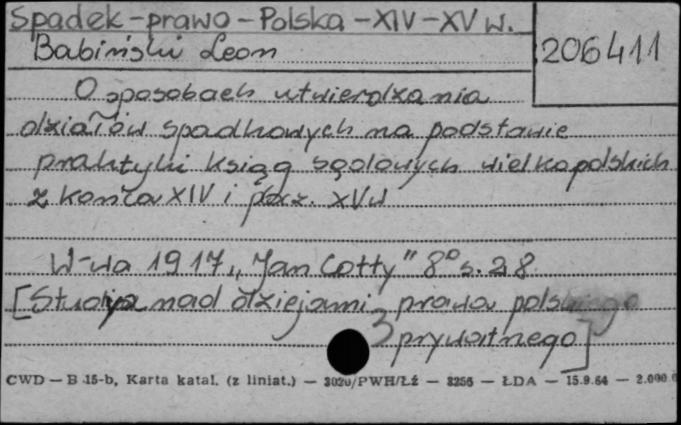 Spadek-prawo-Polska-XIV-XV w.
Babiński Leon
206411
O sposobach utwierdzania
działów spadkowych na podstawie
praktyki ksiąg sądowych wielkopolskich
z końca XIV i pocz. XV w
W-wa 1917, "Jan Cotty" 8° s. 28
[Studya nad dziejami prawa polskiego
prywatnego]
CWD — B 15-b, Karta katal. (z liniat.) — 3020/PWH/Łź — 3256 — ŁDA — 15.9.64 — 2.000.0